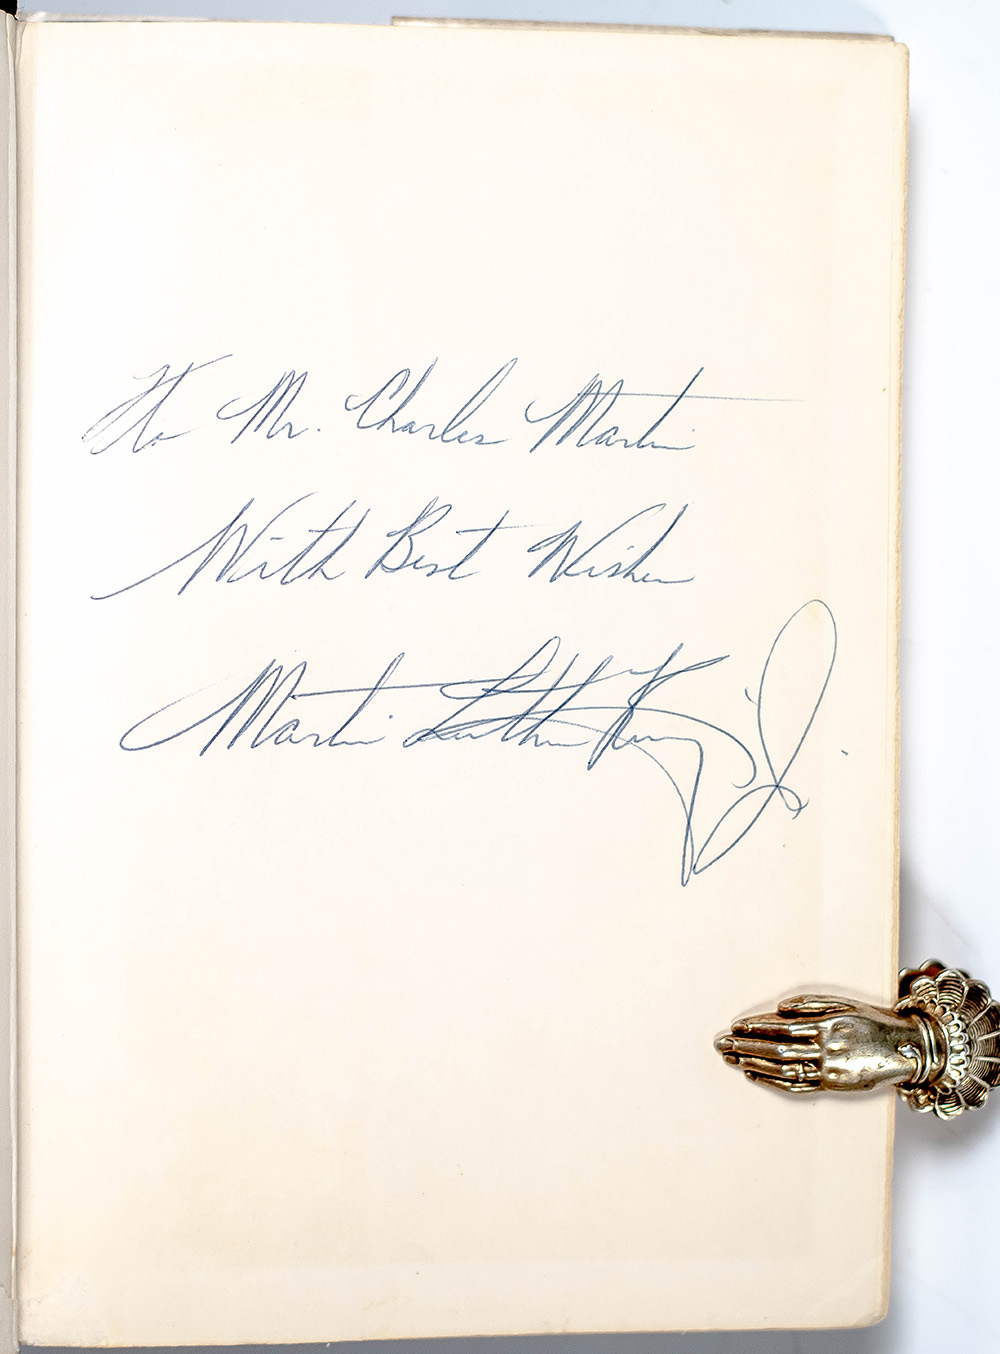 To Mr. Charles Martin
With Best Wishes
Martin Luther King, Jr.